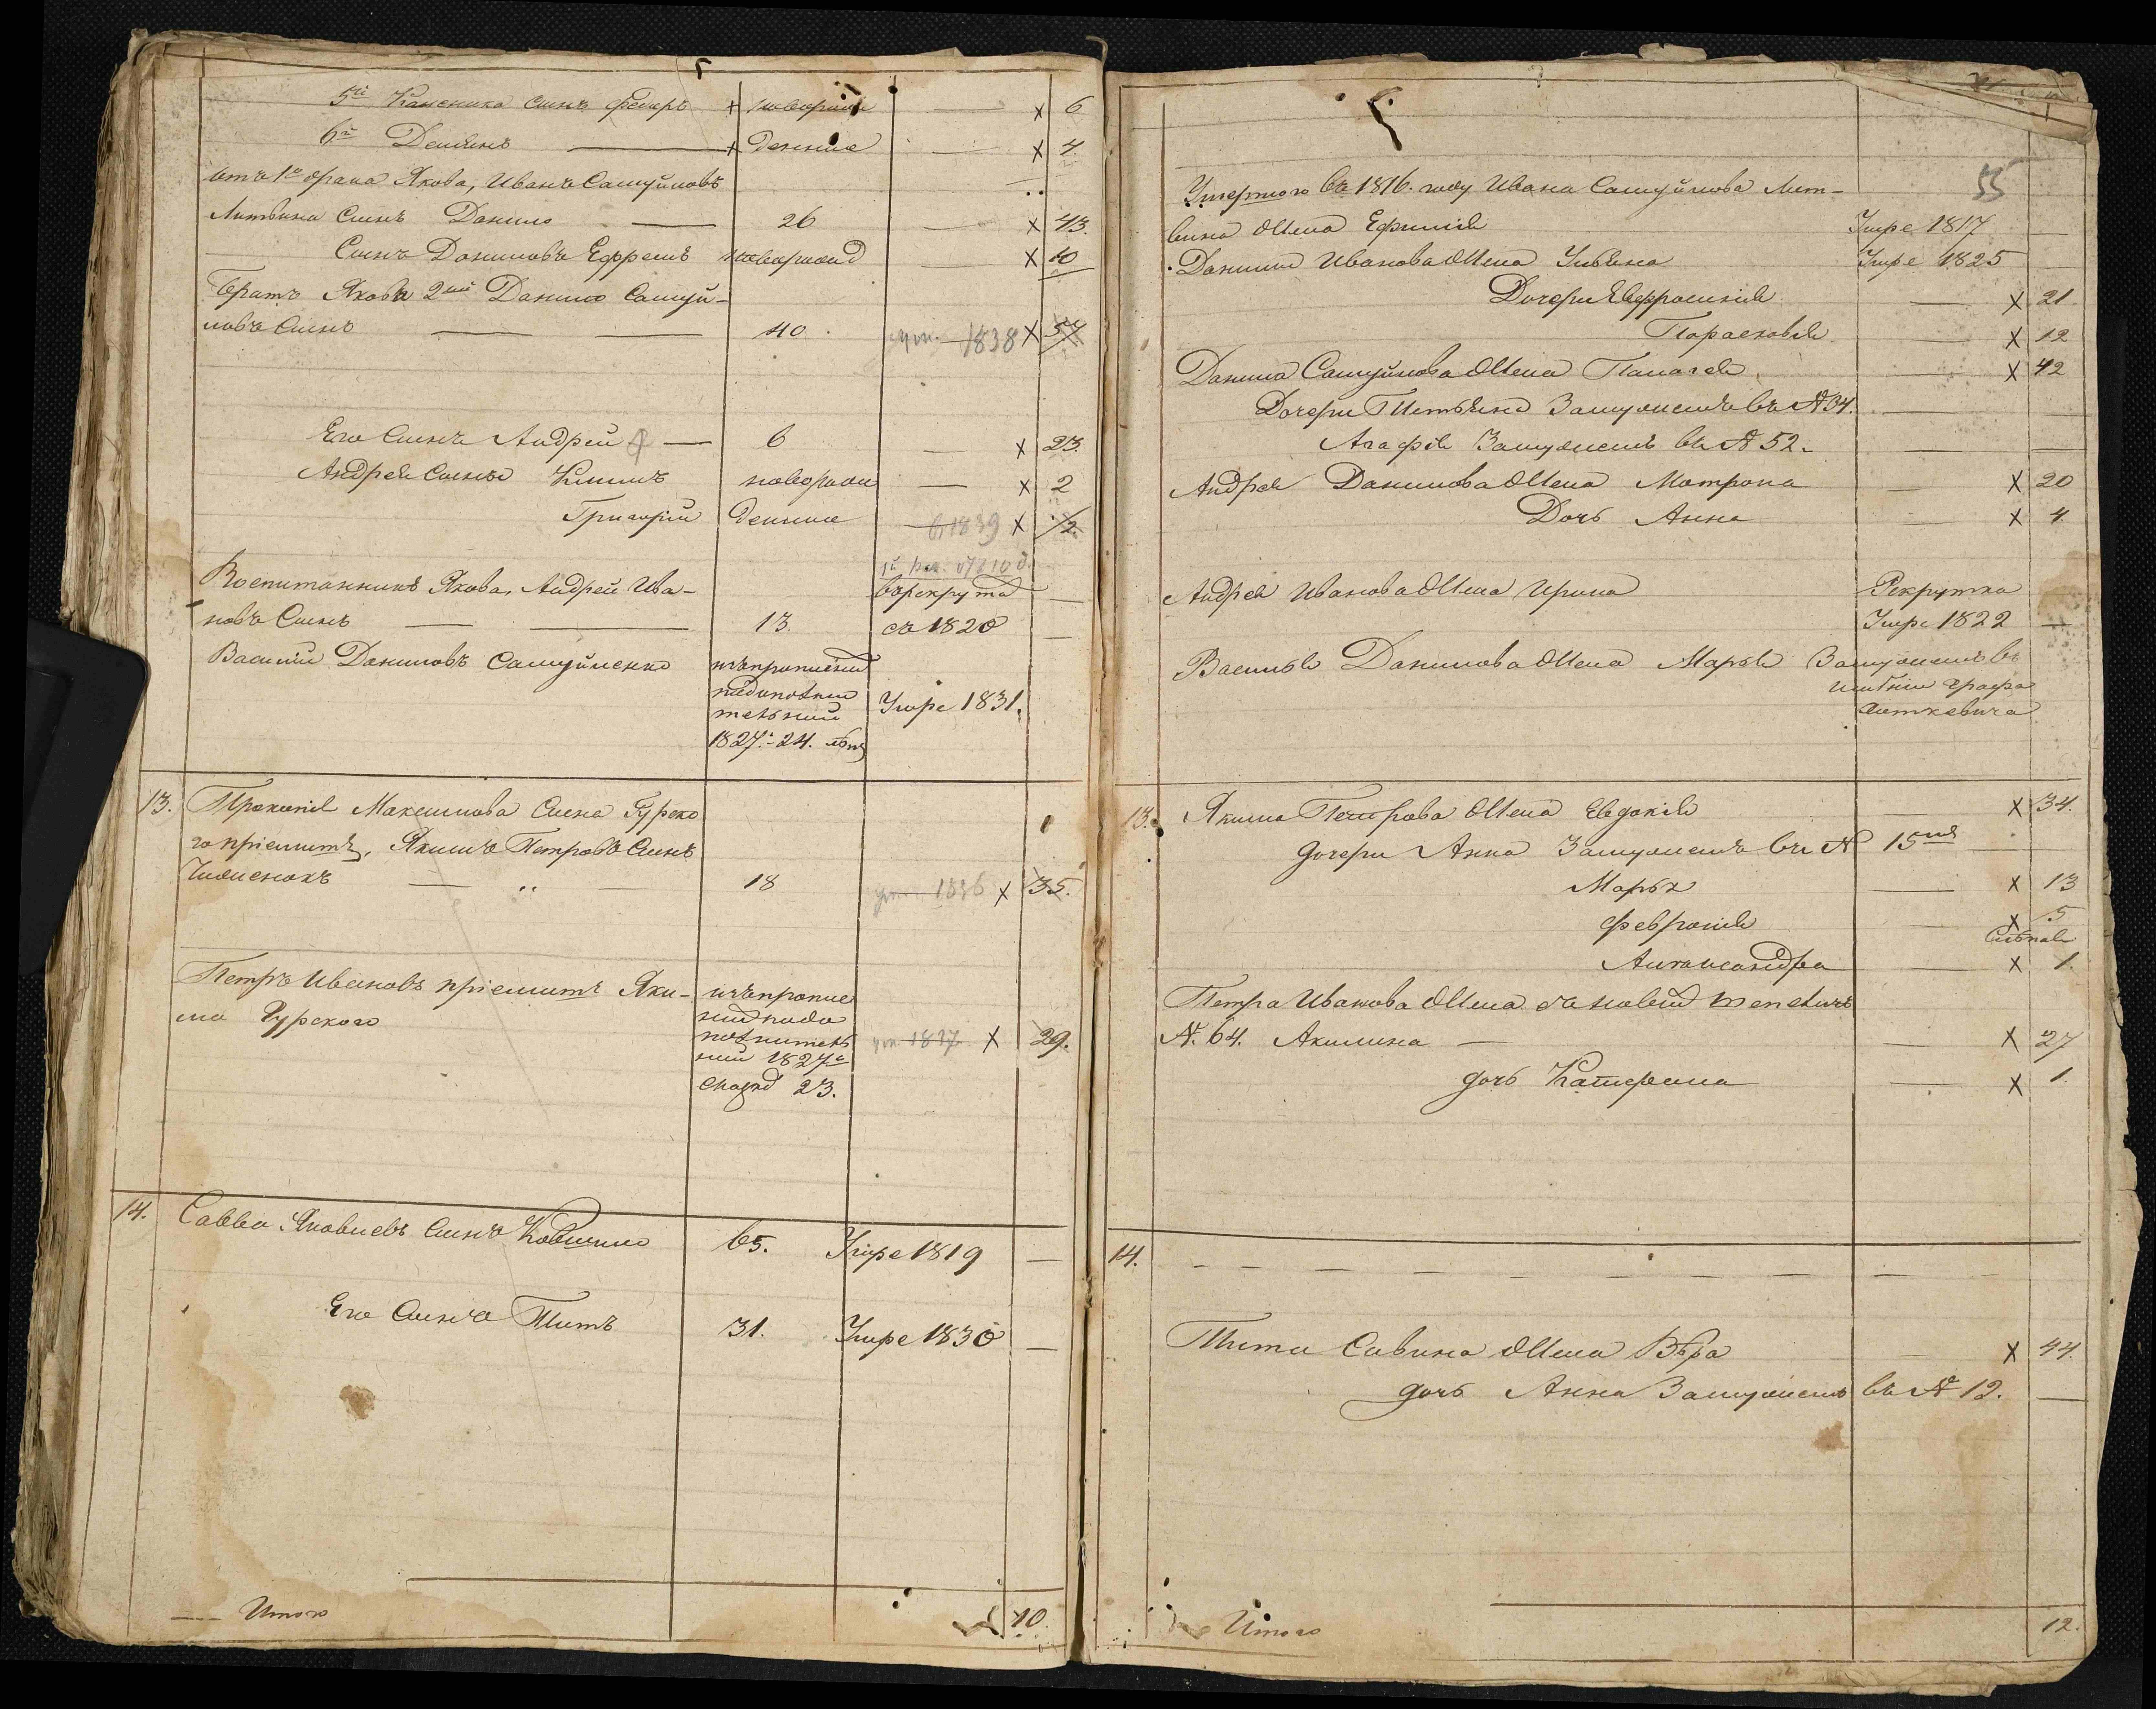 5й сынъ Федоръ + новорож — x 6
6й Демьянъ — + денные — x 4
отъ 1го брата Якова, Иванъ Самуйловъ
Литвина Сынъ Данило — 26 — x 43.
Сынъ Даниловъ Ефремъ новорожд — x 10
Братъ Якова 2ый Данило Самуй-
ловъ Сынъ — — 40. ум. 1838 x 57
Его Сынъ Андрей — 6 — x 23.
Андрея Сыны Климъ новорож — x 2
Григорій денные 1839 x 1/2
Воспитанникъ Якова, Андрей Ива- въ рекрута —
новъ Сынъ — — 13. съ 1820 —
Василій Даниловъ Самуйленко
Умре 1831.
1827го 24. лѣтъ
13. Прокопія Максимова Сына Гурско
го пріемышъ, Якимъ Петровъ Сынъ
— " — 18 ум. 1836 x 35.
Петръ Ивановъ пріемышъ Яки-
ма Гурского
ум. 1837 x 29.
1827го
23.
14. Савва Яковлевъ Сынъ 65. Умре 1819 —
Его Сынъ Титъ 31. Умре 1830 —
— Итого 10.
55
Умершого въ 1816. году Ивана Самуйлова Лит-
вина Жена Ефимія Умре 1817 —
Данилы Иванова Жена Ульяна Умре 1825
Дочери Евфросинія — x 21
Парасковія — x 12
Данила Самуйлова Жена Палагея — x 42
Дочери Татьяна Замужемъ въ № 34. — —
Агафія Замужемъ въ № 52. — —
Андрея Данилова Жена Матрона — x 20
Дочь Анна — x 4.
Андрея Иванова Жена Ирина Рекрутка
Умре 1822 —
Василія Данилова Жена Марья Замужемъ въ
имѣніи графа
13. Якима Петрова Жена Евдокія — x 34.
дочери Анна Замужемъ въ № 15мъ —
Марья — x 13
Февронія — x 5
слѣпая
Александра — x 1.
Петра Иванова Жена
№. 64. Акилина — — x 27
дочь Катерина — x 1.
14. — — — — — — — — — —
Тита Савина Жена Вѣра — x 44.
дочь Анна Замужемъ въ № 12. —
Итого 12.